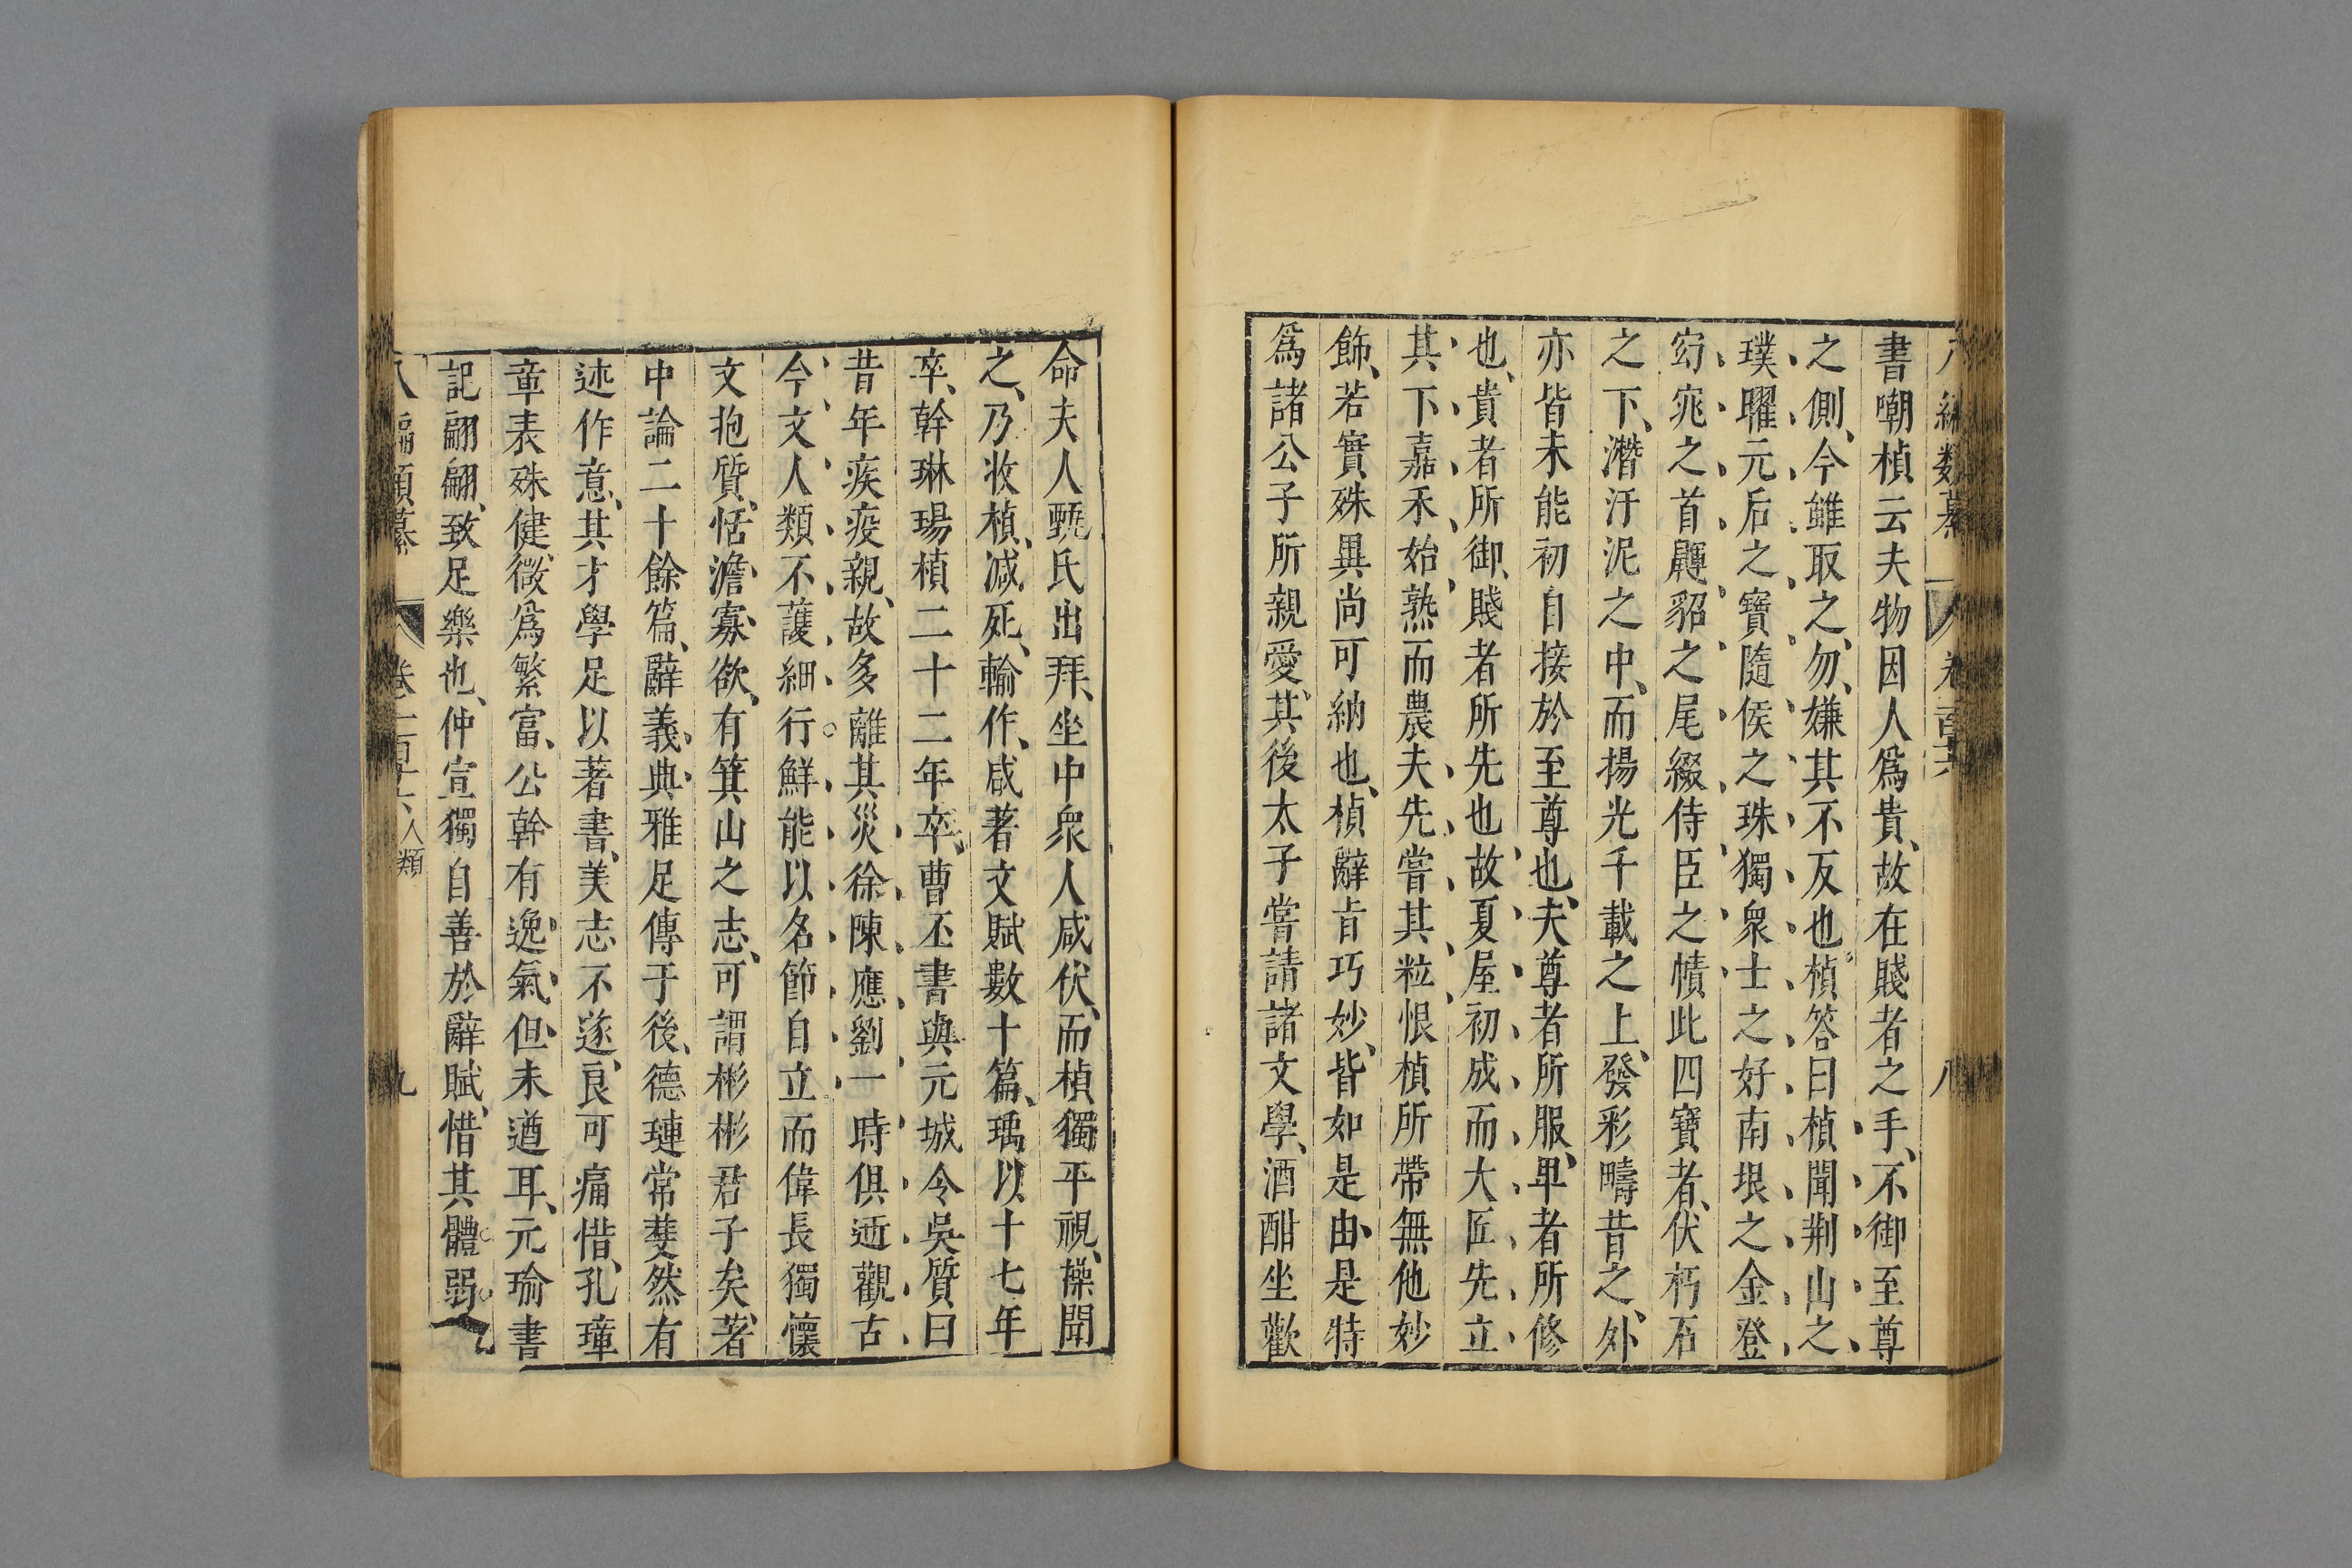 書嘲楨云夫物因人爲貴、故在賤者之手、不御至尊
之側、今雖取之、勿嫌其不反也楨答曰楨聞荆山之
璞曜元后之寶隨侯之珠獨衆士之好南垠之金登
窈窕之首鼲貂之尾綴侍臣之幘此四寶者、伏朽石
之下、潛汙泥之中、而揚光千載之上、發彩疇昔之、外、
亦皆未能初自接於至尊也、夫尊者所服、卑者所修
也、貴者所御、賤者所先也、故夏屋初成而大匠先立
其下嘉禾始熟而農夫先嘗其粒恨楨所帶無他妙
飾、若實殊異尚可納也、楨辭旨巧妙、皆如是由是特
爲諸公子所親愛、其後太子嘗請諸文學、酒酣坐歡
命夫人甄氏出拜、坐中衆人咸伏、而楨獨平視、操聞
之、乃收楨、減死、輸作、咸著文賦數十篇、瑀以十七年
卒、幹琳瑒楨二十二年卒、曹丕書與元城令吳質曰
昔年疾疫親、故多離其災徐陳應劉一時俱逝觀古
今文人類不護細行鮮能以名節自立而偉長獨懷
文抱質、恬澹寡欲、有箕山之志、可謂彬彬君子矣、著
中論二十餘篇、辭義典雅足傳于後、德璉常斐然有
述作意、其才學足以著書、美志不遂、良可痛惜、孔璋
章表殊健、微爲繁富、公幹有逸氣、但未遒耳、元瑜書
記翩翩、致足樂也、仲宣獨自善於辭賦、惜其體弱
八編類纂 卷二百十六 人類 九